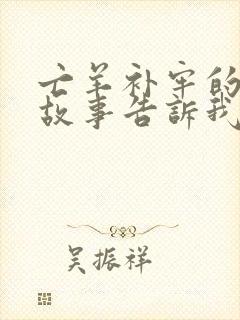 亡羊补牢的
故事告訴我
吴振祥